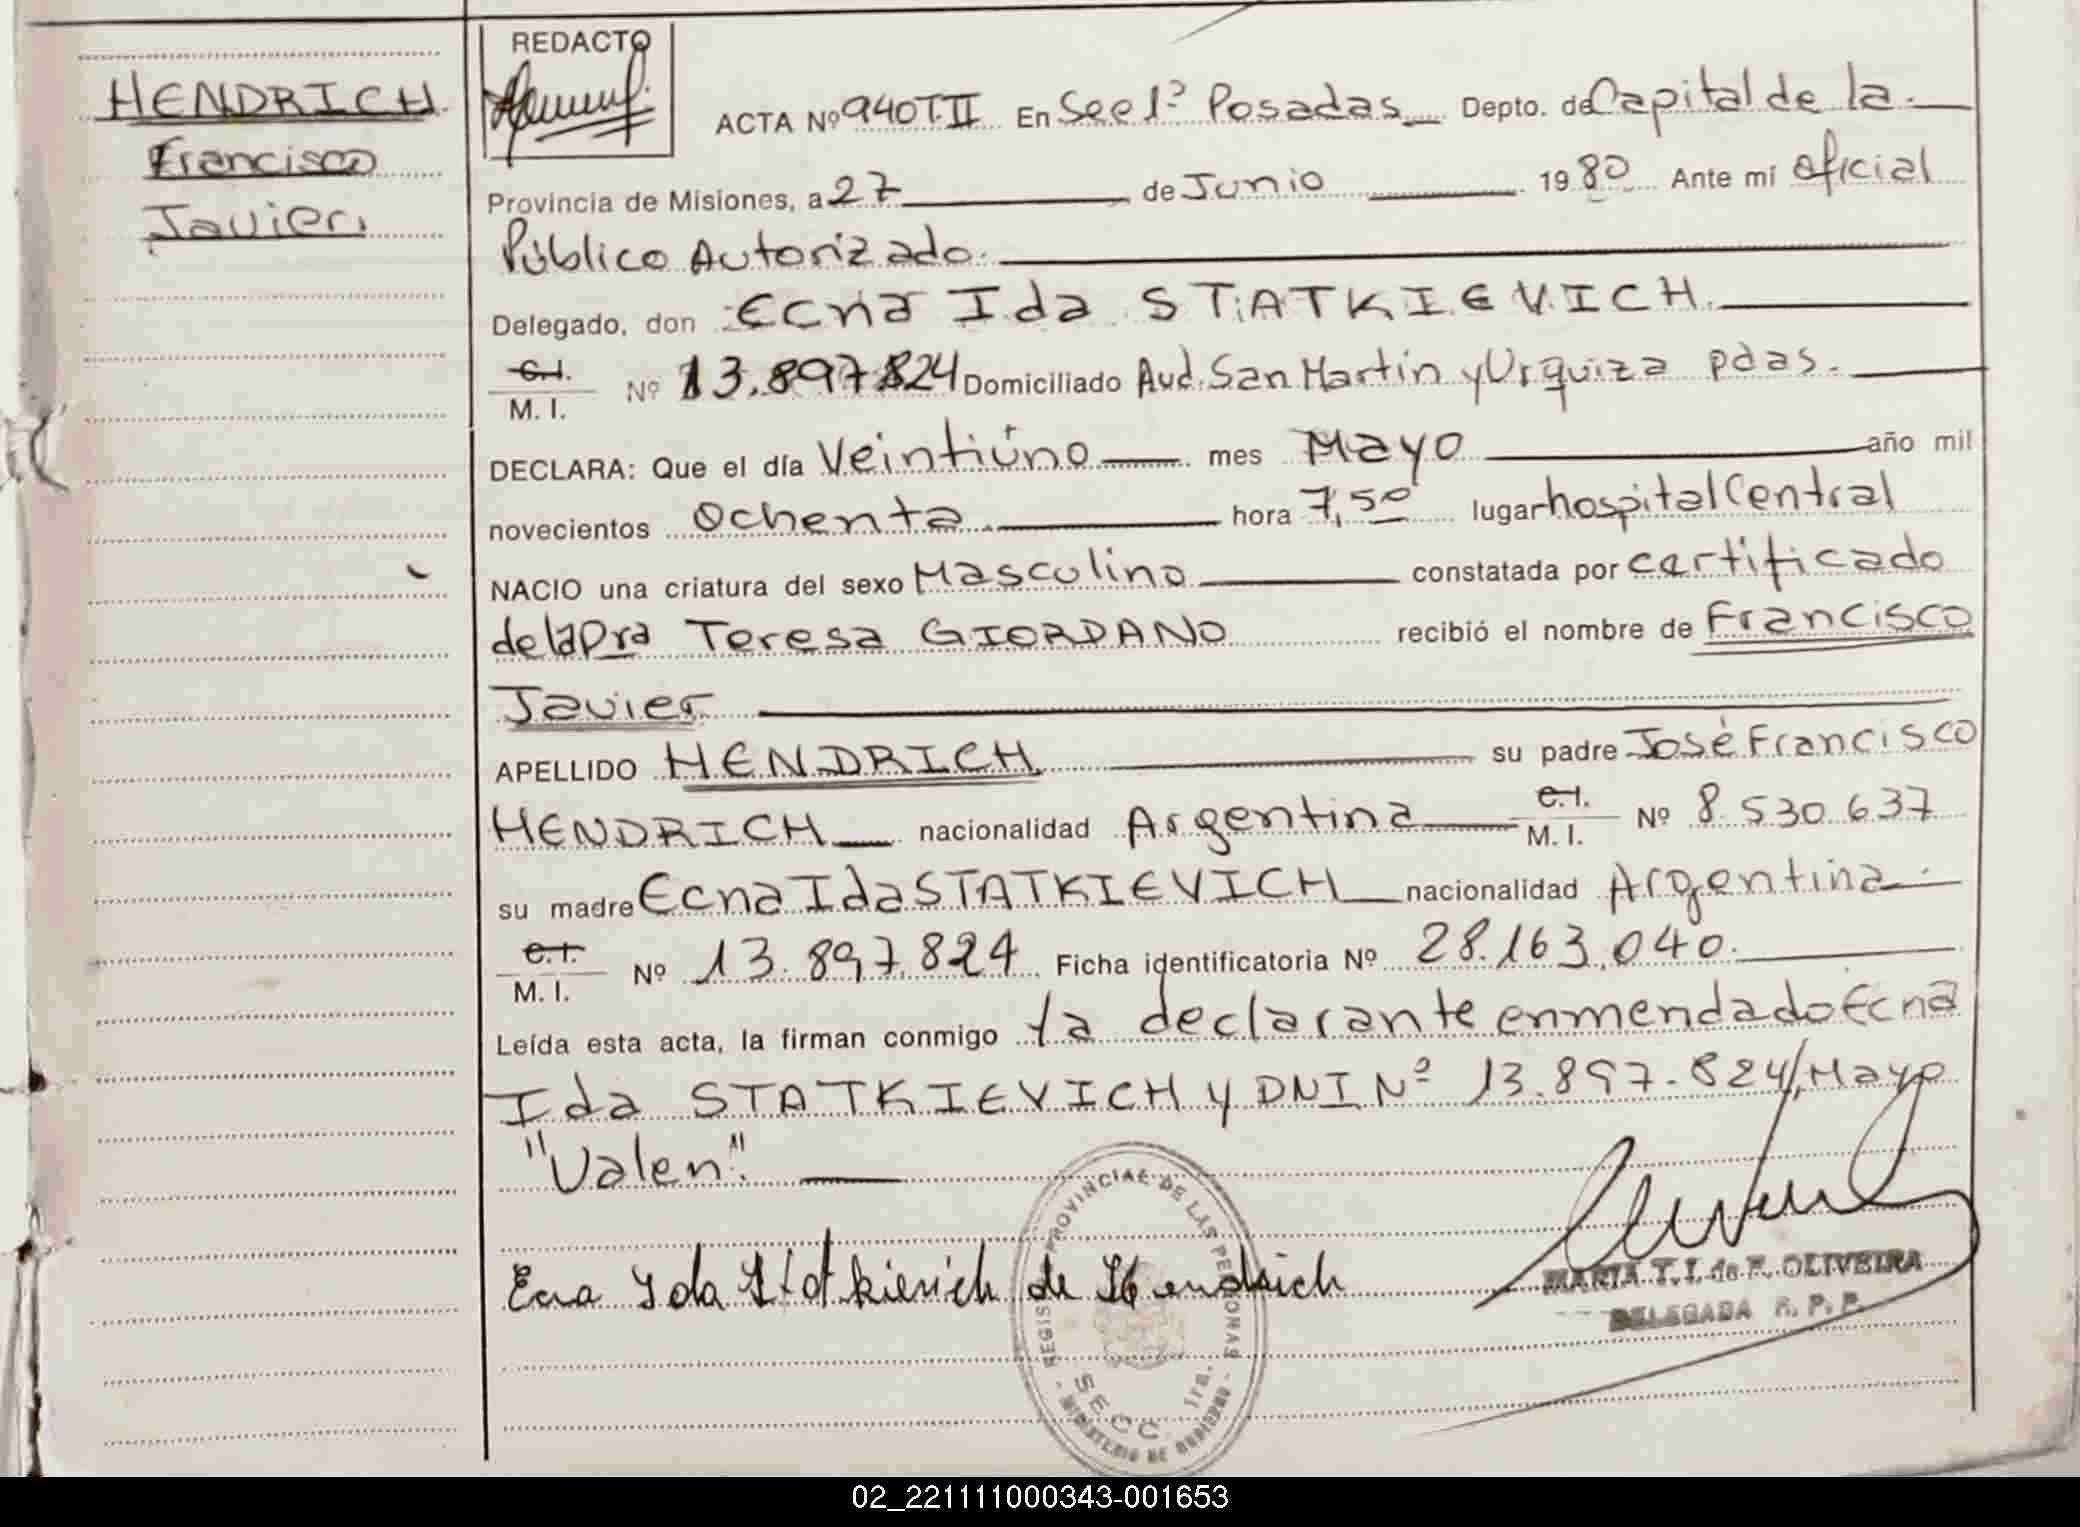 HENDRICH
Francisco
Javier.
REDACTO
ACTA Nº 940 T.II En Secc 1ª Posadas Depto. de Capital de la
Provincia de Misiones, a 27 de Junio 1980 Ante mí oficial
Público Autorizado.
Delegado, don Ecna Ida STATKIEVICH.
C.I.
M. I. Nº 13.897.824 Domiciliado Avd. San Martin y Urquiza pdas.
DECLARA: Que el día Veintiúno mes Mayo año mil
novecientos Ochenta hora 7,50 lugar hospital Central
NACIO una criatura del sexo Masculino constatada por certificado
de la Dra Teresa GIORDANO recibió el nombre de Francisco
Javier
APELLIDO HENDRICH su padre José Francisco
HENDRICH nacionalidad Argentina C.I. M. I. Nº 8.530.637
su madre Ecna Ida STATKIEVICH nacionalidad Argentina.
C.I.
M. I. Nº 13.897.824 Ficha identificatoria Nº 28.163.040.
Leída esta acta, la firman conmigo la declarante enmendado Ecna
Ida STATKIEVICH y DNI Nº 13.897.824/, Mayo
"Valen".
Ecna Ida Statkievich de Hendrich
MARIA T. I. de F. OLIVEIRA
DELEGADA R. P. P.
REGISTRO PROVINCIAL DE LAS PERSONAS
SECC. 1ra.
- MINISTERIO DE GOBIERNO -
02_221111000343-001653